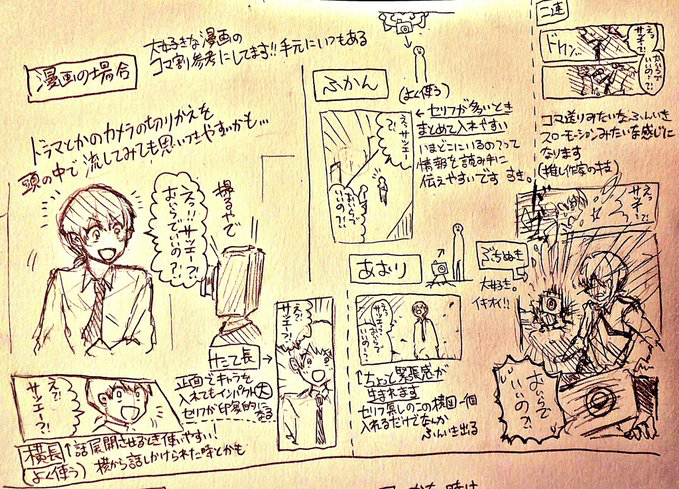 漫画の場合
大好きな漫画の
コマ割参考にしてます!!手元にいつもある
ドラマとかのカメラの切りかえを
頭の中で流してみても思いつきやすいかも…
撮るやで
えっ!!サツエー?!
おいらでいいの?!
横長
(よく使う)
↑話展開させるとき使いやすい!
横から話しかけられた時とかも
えっ?!
サツエー?!
たて長
正面でキャラを
入れてもインパクト大
セリフが印象的になる
えっ?!
サツエー?!
ふかん
(よく使う)
←セリフが多いとき
まとめて入れやすい
いまどこにいるの?って
情報を読み手に
伝えやすいです すき。
えっサツエー?!
おいらで
いいの?!
あおり
えっ?!
サツエー?!
おいらで
いいの?!
↑ちょっと緊張感が
生まれます
セリフ無しのこの構図一個
入れるだけでなんか
ふんいき出る
二連
ドドン
えっ
サツエー?!
おいらで
いいの?!
コマ送りみたいなふんいき
スローモーションみたいな感じに
なります
(推し作家の技)
えっ
サツエー?!
ぶちぬき
大好き。
イキオイ!!
おいらで
いいの?!